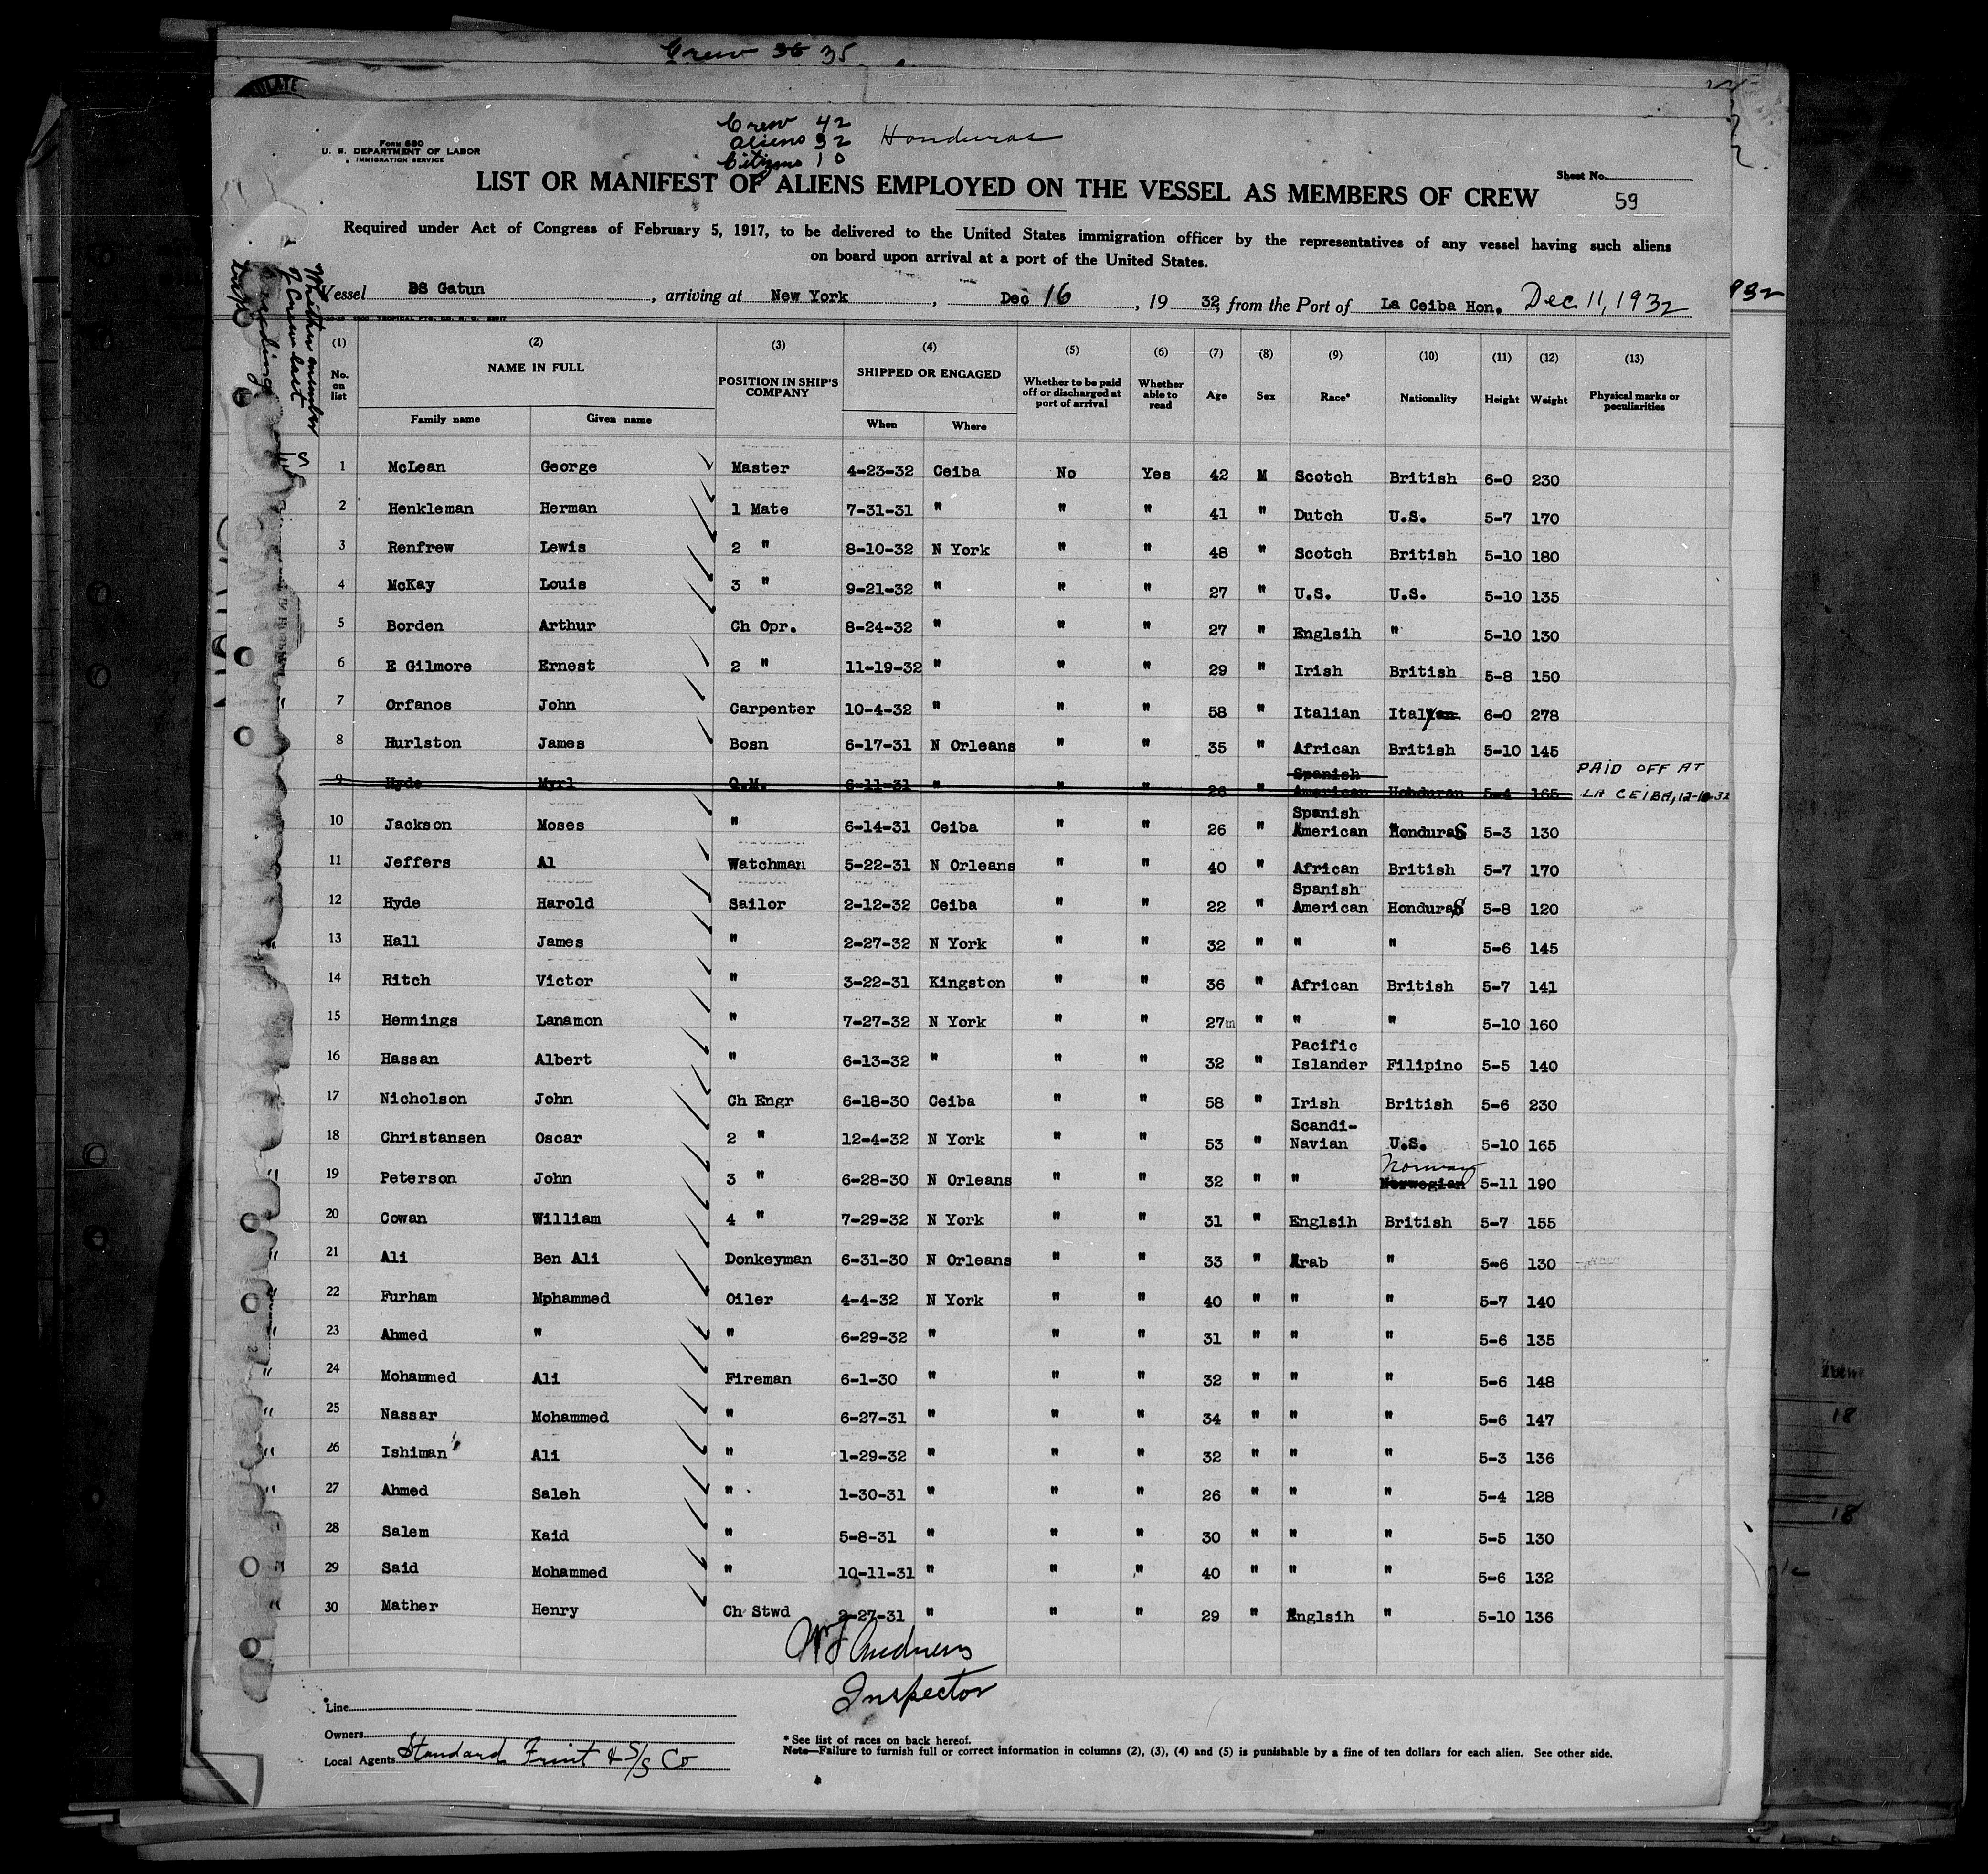 Crew 36 35
Crew 42
Aliens 32
Citizens 10
Honduras
Form 680
U. S. DEPARTMENT OF LABOR
IMMIGRATION SERVICE
Sheet No.
59
LIST OR MANIFEST OF ALIENS EMPLOYED ON THE VESSEL AS MEMBERS OF CREW
Required under Act of Congress of February 5, 1917, to be delivered to the United States immigration officer by the representatives of any vessel having such aliens
on board upon arrival at a port of the United States.
Whether member
of Crew last
Vessel BS Gatun, arriving at New York, Dec 16, 19 32, from the Port of La Ceiba Hon. Dec 11, 1932
(1) (2) (3) (4) (5) (6) (7) (8) (9) (10) (11) (12) (13)
No. on list NAME IN FULL POSITION IN SHIP'S COMPANY SHIPPED OR ENGAGED Whether to be paid off or discharged at port of arrival Whether able to read Age Sex Race* Nationality Height Weight Physical marks or peculiarities
Family name Given name When Where
1 McLean George Master 4-23-32 Ceiba No Yes 42 M Scotch British 6-0 230
2 Henkleman Herman 1 Mate 7-31-31 " " " 41 " Dutch U.S. 5-7 170
3 Renfrew Lewis 2 " 8-10-32 N York " " 48 " Scotch British 5-10 180
4 McKay Louis 3 " 9-21-32 " " " 27 " U.S. U.S. 5-10 135
5 Borden Arthur Ch Opr. 8-24-32 " " " 27 " Englsih " 5-10 130
6 E Gilmore Ernest 2 " 11-19-32 " " " 29 " Irish British 5-8 150
7 Orfanos John Carpenter 10-4-32 " " " 58 " Italian Italy 6-0 278
8 Hurlston James Bosn 6-17-31 N Orleans " " 35 " African British 5-10 145
9 Hyde Myrl Q.M. 6-11-31 " " " 26 " Spanish American Honduran 5-4 165 PAID OFF AT LA CEIBA, 12-10-32
10 Jackson Moses " 6-14-31 Ceiba " " 26 " Spanish American HonduraS 5-3 130
11 Jeffers Al Watchman 5-22-31 N Orleans " " 40 " African British 5-7 170
12 Hyde Harold Sailor 2-12-32 Ceiba " " 22 " Spanish American HonduraS 5-8 120
13 Hall James " 2-27-32 N York " " 32 " " " 5-6 145
14 Ritch Victor " 3-22-31 Kingston " " 36 " African British 5-7 141
15 Hennings Lanamon " 7-27-32 N York " " 27m " " " 5-10 160
16 Hassan Albert " 6-13-32 " " " 32 " Pacific Islander Filipino 5-5 140
17 Nicholson John Ch Engr 6-18-30 Ceiba " " 58 " Irish British 5-6 230
18 Christansen Oscar 2 " 12-4-32 N York " " 53 " Scandi- Navian U.S. 5-10 165
19 Peterson John 3 " 6-28-30 N Orleans " " 32 " " Norway Norwegian 5-11 190
20 Cowan William 4 " 7-29-32 N York " " 31 " Englsih British 5-7 155
21 Ali Ben Ali Donkeyman 6-31-30 N Orleans " " 33 " Arab " 5-6 130
22 Furham Mphammed Oiler 4-4-32 N York " " 40 " " " 5-7 140
23 Ahmed " " 6-29-32 " " " 31 " " " 5-6 135
24 Mohammed Ali Fireman 6-1-30 " " " 32 " " " 5-6 148
25 Nassar Mohammed " 6-27-31 " " " 34 " " " 5-6 147
26 Ishiman Ali " 1-29-32 " " " 32 " " " 5-3 136
27 Ahmed Saleh " 1-30-31 " " " 26 " " " 5-4 128
28 Salem Kaid " 5-8-31 " " " 30 " " " 5-5 130
29 Said Mohammed " 10-11-31 " " " 40 " " " 5-6 132
30 Mather Henry Ch Stwd 2-27-31 " " " 29 " Englsih " 5-10 136
Andrews
Inspector
Line
Owners
Local Agents Standard Fruit & S/S Co
*See list of races on back hereof.
Note—Failure to furnish full or correct information in columns (2), (3), (4) and (5) is punishable by a fine of ten dollars for each alien. See other side.
932
18
18